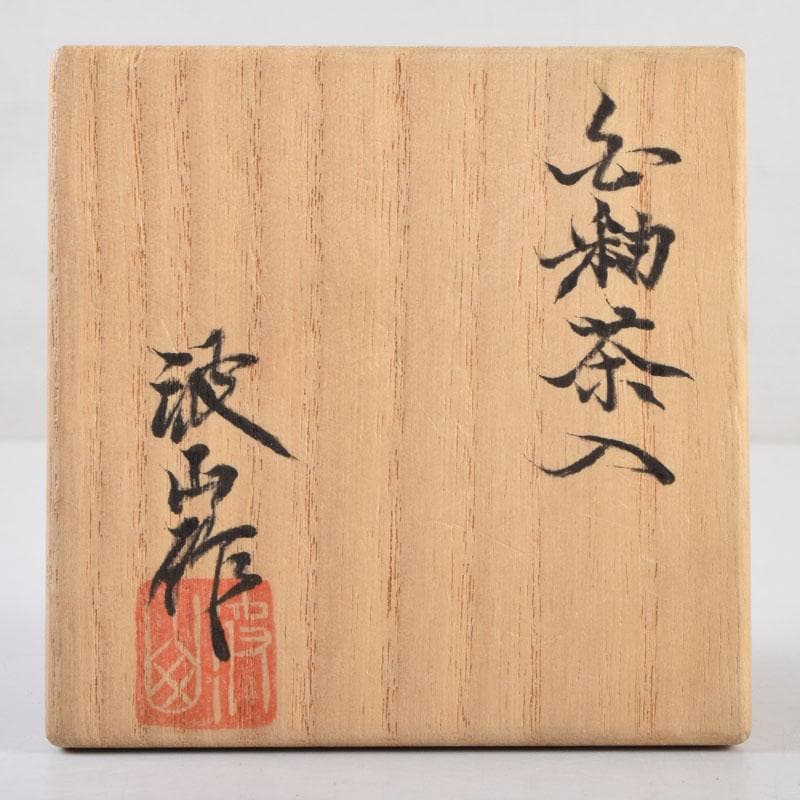 白釉茶入
波山作